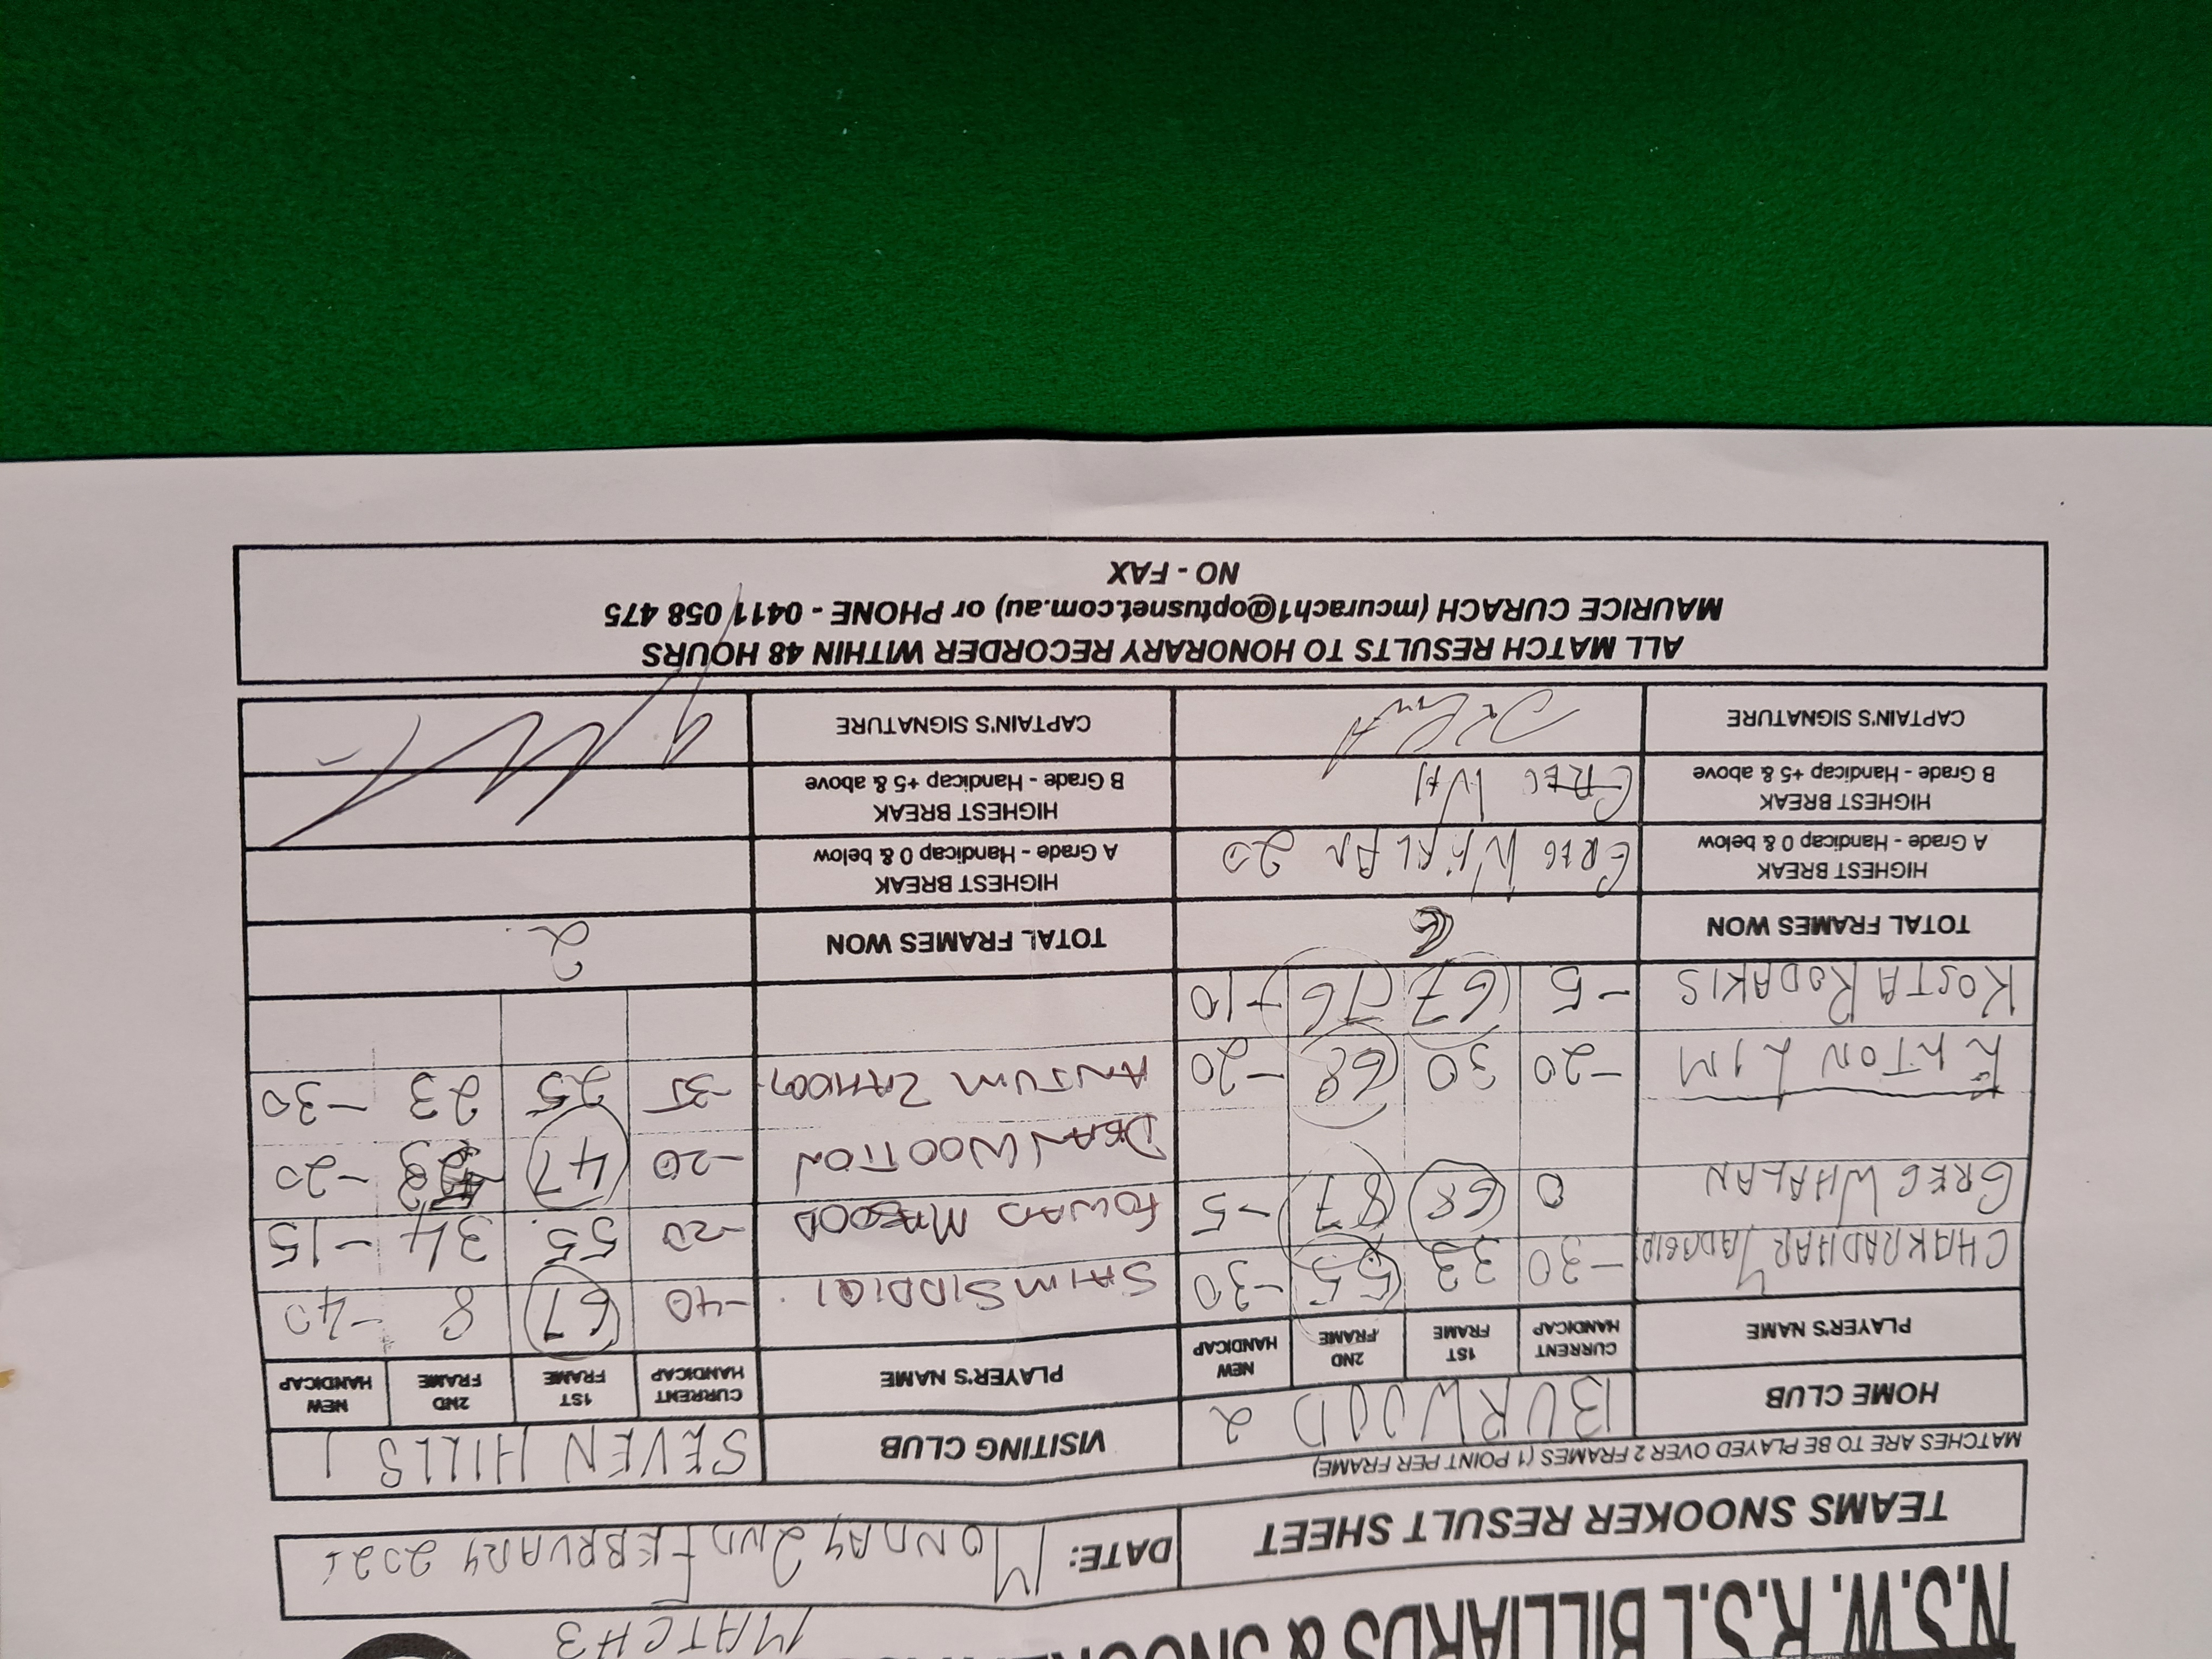 N.S.W. R.S.L BILLIARDS & SNOOKER
MATCH 3
TEAMS SNOOKER RESULT SHEET DATE: MONDAY 2ND FEBRUARY
MATCHES ARE TO BE PLAYED OVER 2 FRAMES (1 POINT PER FRAME)
HOME CLUB BURWOOD 2 VISITING CLUB SEVEN HILLS 1
PLAYER'S NAME CURRENT HANDICAP 1ST FRAME 2ND FRAME NEW HANDICAP PLAYER'S NAME CURRENT HANDICAP 1ST FRAME 2ND FRAME NEW HANDICAP
CHAKRADHAR -30 33 55 -30 SAIM SIDDIQI -40 67 8 -40
GREG WHALAN 0 68 87 -5 FOWAD -20 55 34 -15
DEAN WOOTTON -20 47 -20
KHTON LIM -20 30 68 -20 ANJUM ZAHOOR -35 25 23 -30
KOSTA RODAKIS -5 67 76 -10
TOTAL FRAMES WON 6 TOTAL FRAMES WON 2
HIGHEST BREAK A Grade - Handicap 0 & below GREG WHALAN 20 HIGHEST BREAK A Grade - Handicap 0 & below
HIGHEST BREAK B Grade - Handicap +5 & above GREG WH HIGHEST BREAK B Grade - Handicap +5 & above
CAPTAIN'S SIGNATURE CAPTAIN'S SIGNATURE
ALL MATCH RESULTS TO HONORARY RECORDER WITHIN 48 HOURS
MAURICE CURACH (mcurach1@optusnet.com.au) or PHONE - 0411 058 475
NO - FAX